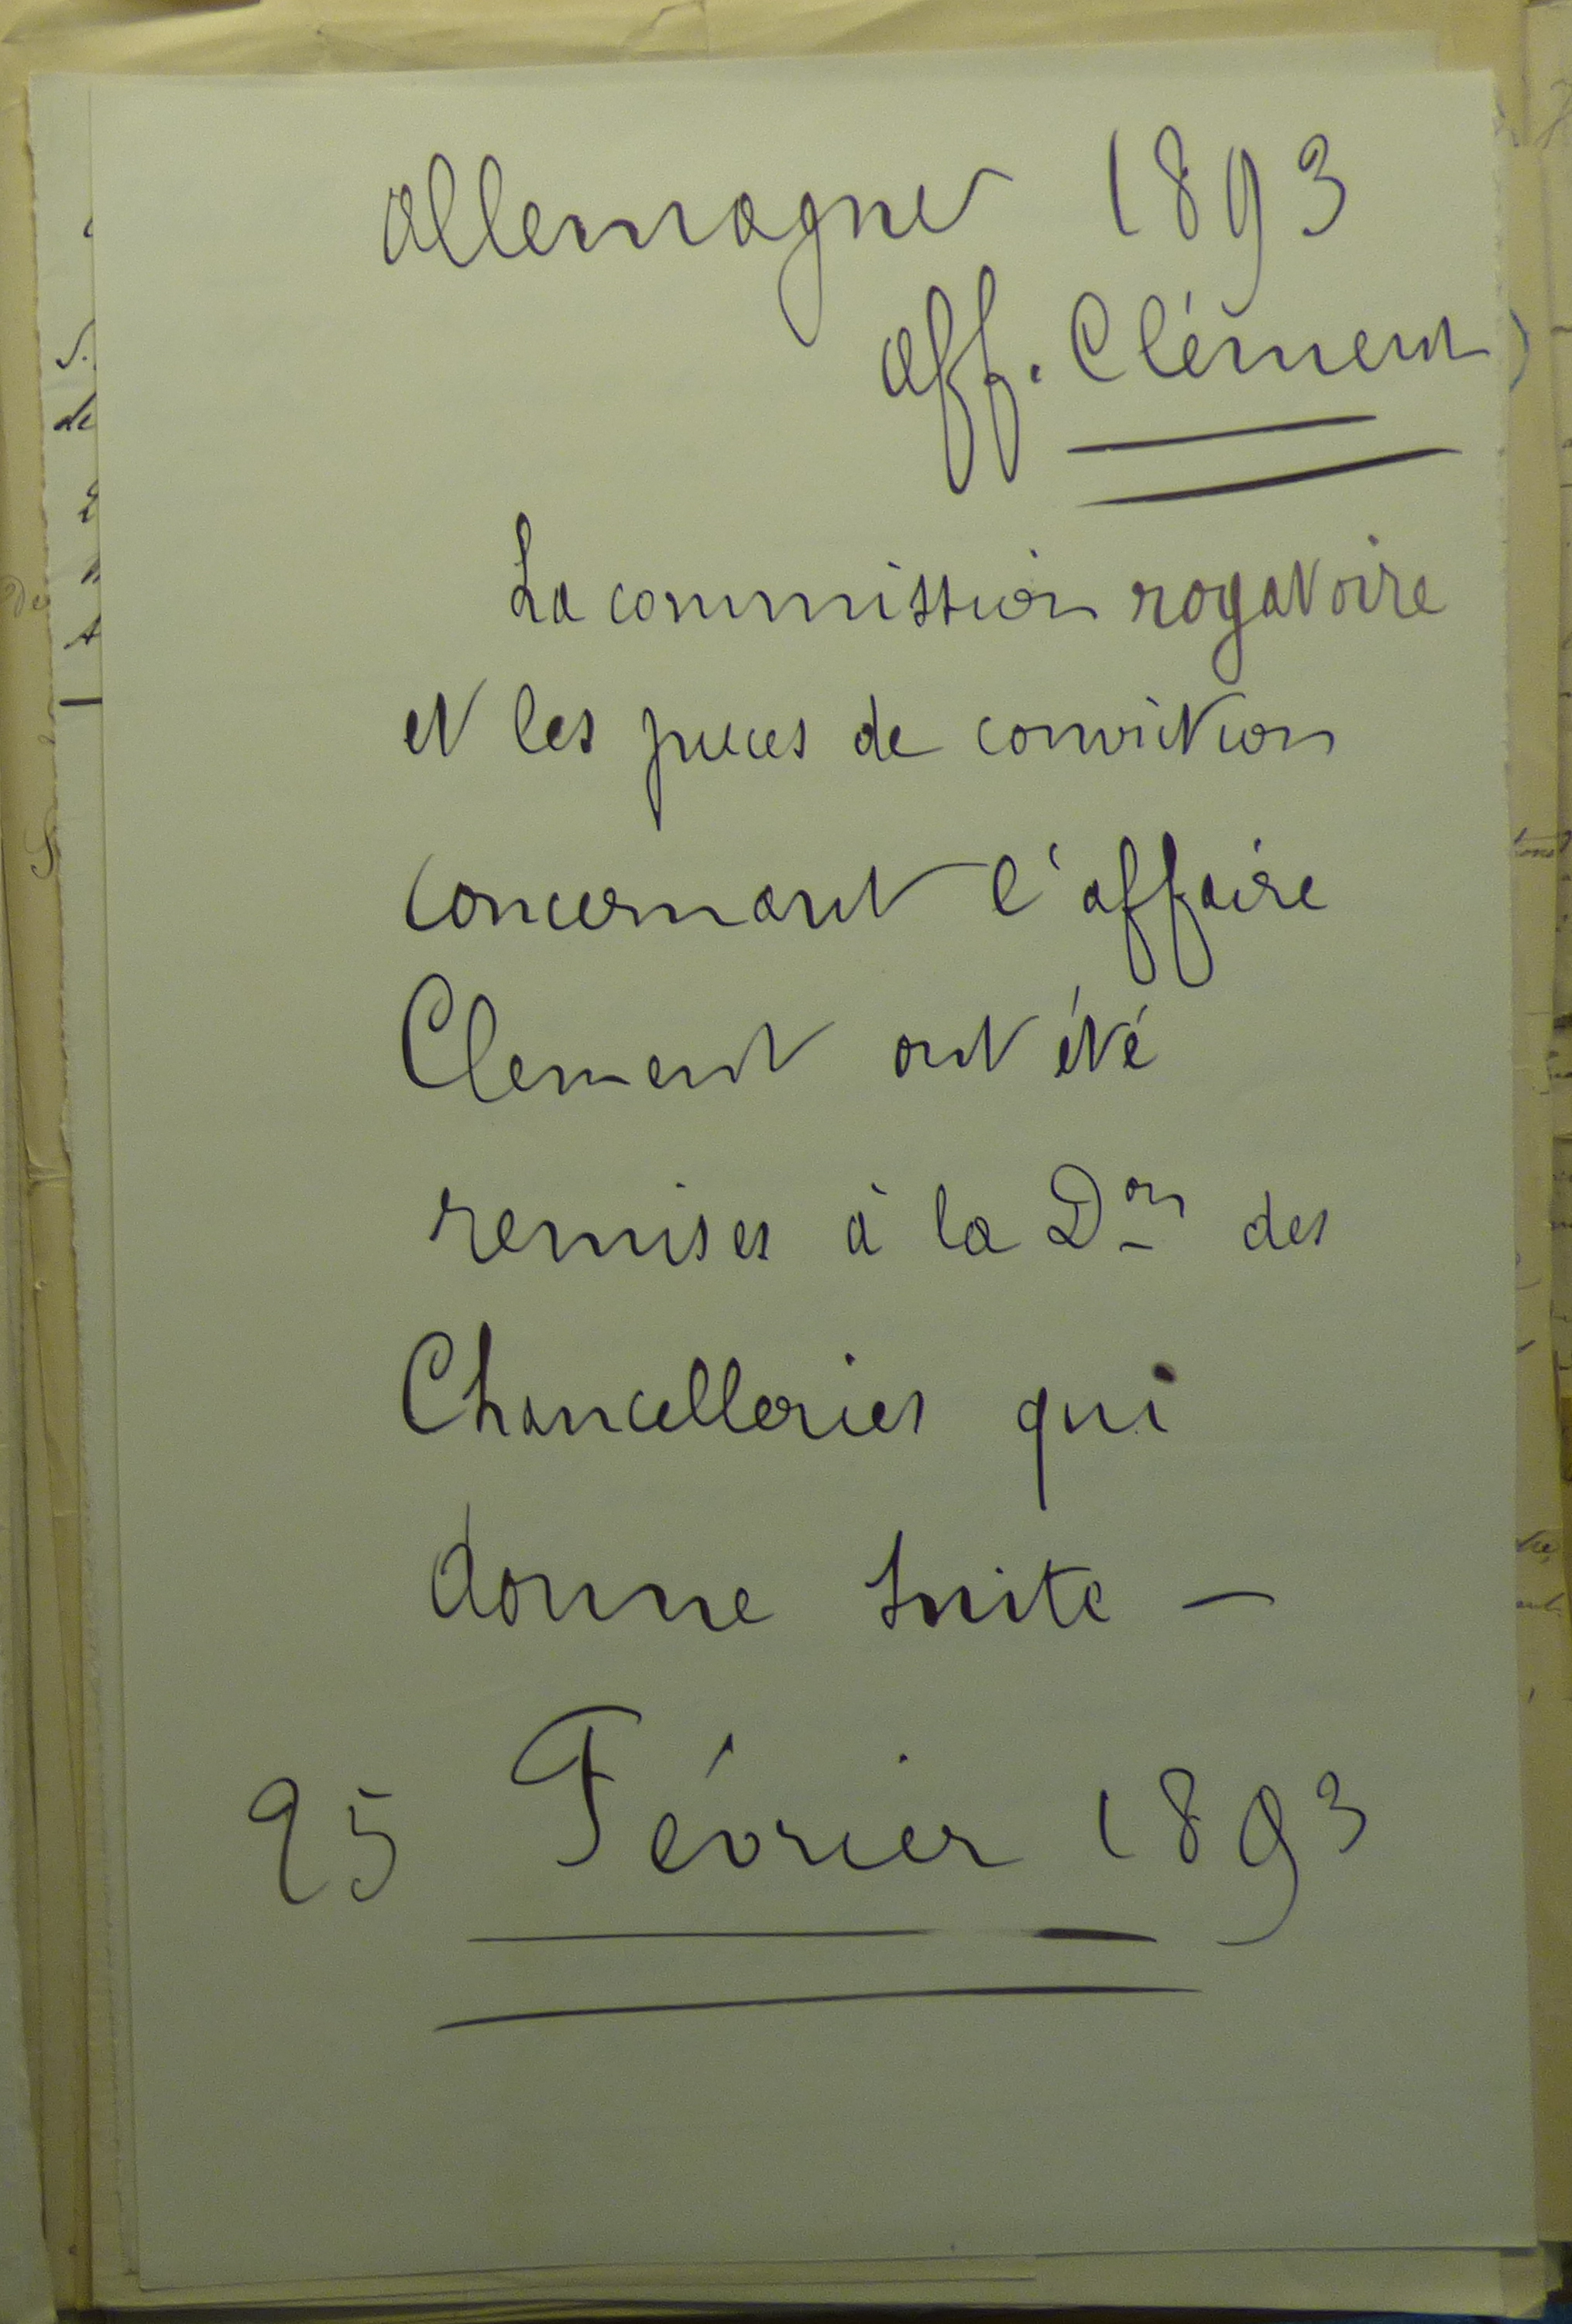 Allemagne 1893
Aff. Clément
La commission rogatoire
et les pieces de conviction
concernant l'affaire
Clement ont été
remises à la D^on des
Chancelleries qui
donne suite —
25 Février 1893